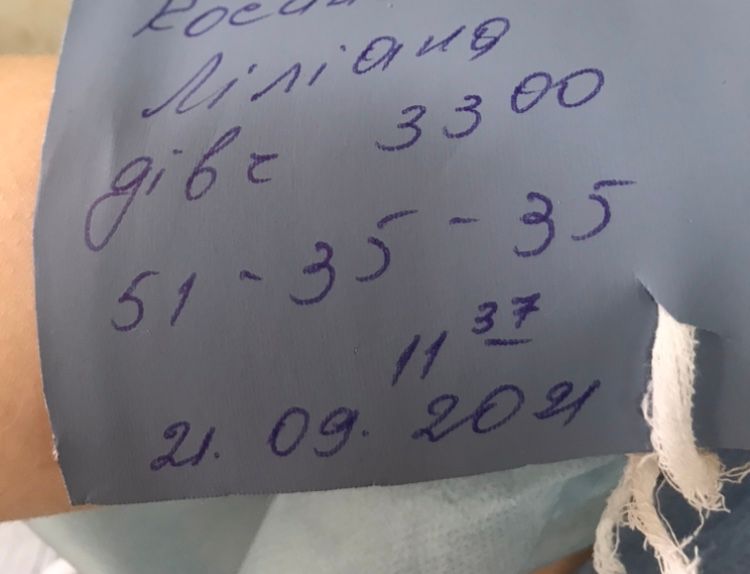 Ліліана
дівч 3300
51 - 35 - 35
11 37
21. 09. 2021